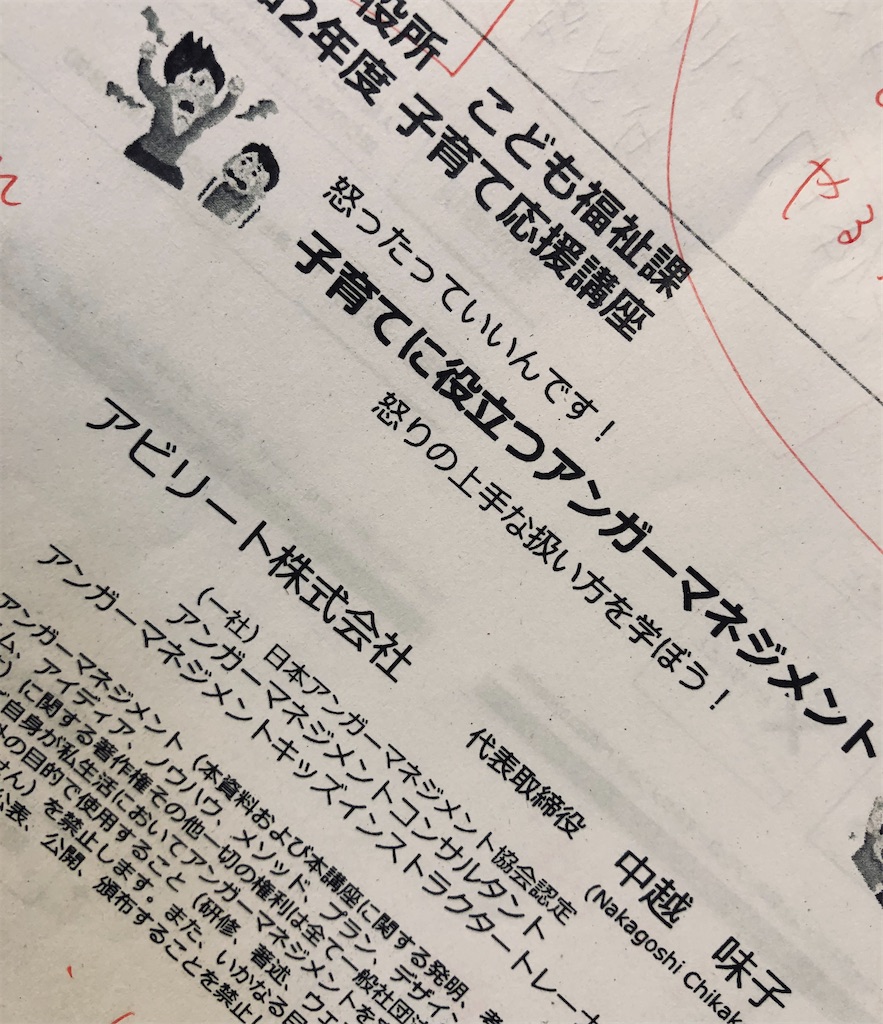 役所 こども福祉課
2年度 子育て応援講座
怒ったっていいんです！
子育てに役立つアンガーマネジメント
怒りの上手な扱い方を学ぼう！
アビリート株式会社
代表取締役 中越 味子
(Nakagoshi Chikak
(一社) 日本アンガーマネジメント協会認定
アンガーマネジメントコンサルタント
アンガーマネジメントキッズインストラクタートレーナ
アンガーマネジメント (本資料および本講座に関する発明、
ム、アイディア、ノウハウ、メソッド、プラン、デザイ
に関する著作権その他一切の権利は全て一般社団法
自身が私生活においてアンガーマネジメントを
外の目的で使用すること (研修、著述、ウェ
せん) を禁止します。また、いかなる目
公表、公開、頒布することを禁止し
やる